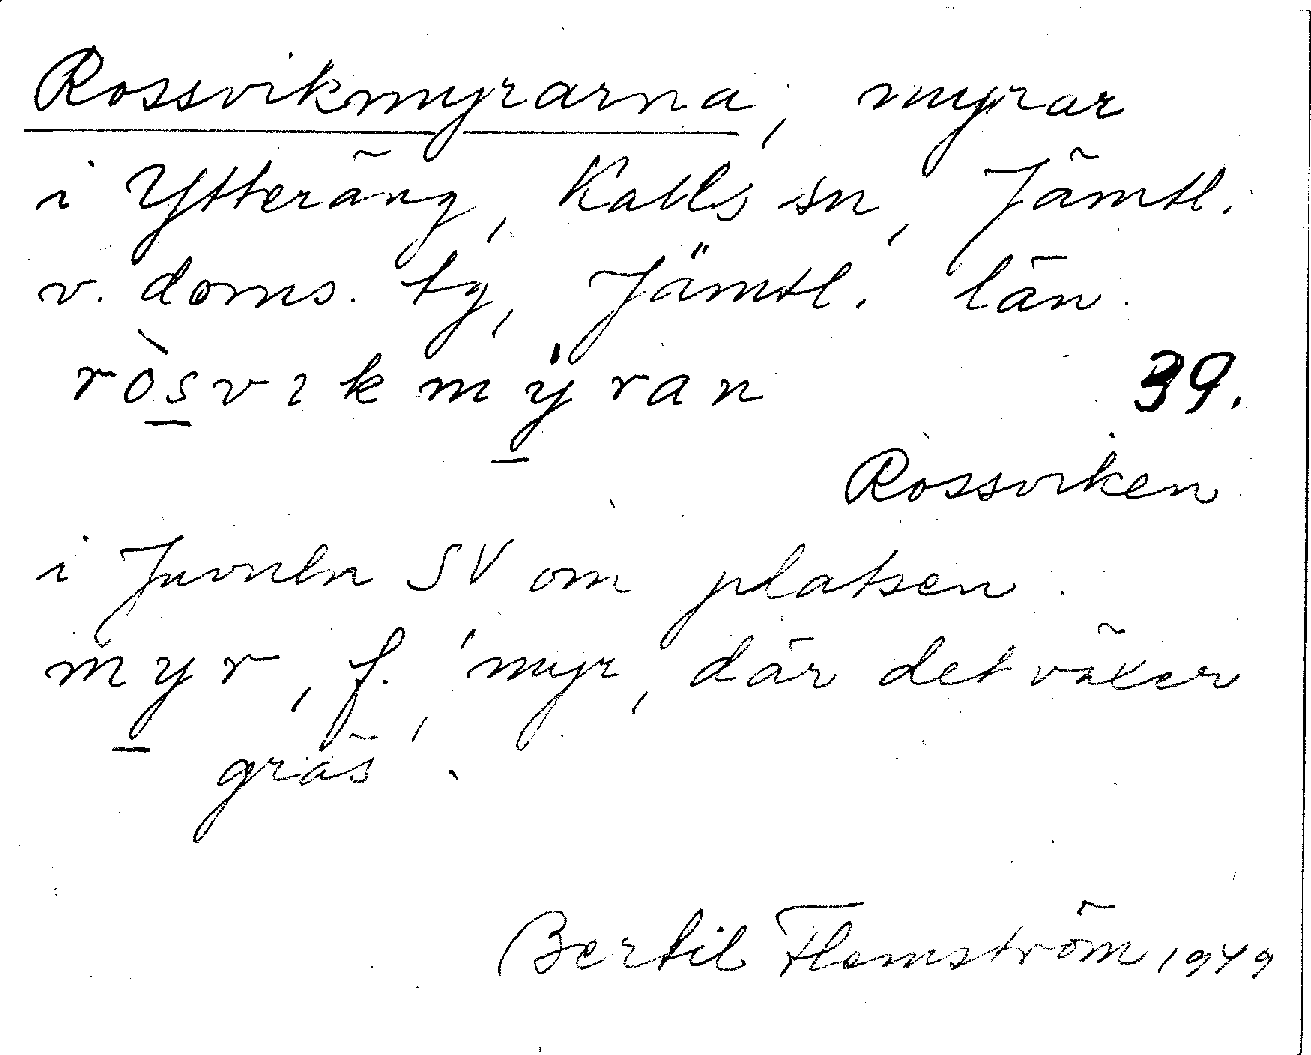 Rossvikmyrarna, myrar
i Ytteräng, Kalls sn, Jämtl.
v. doms. tg, Jämtl. län.
ròsvıkmýran 39.
Rossviken
i Juvuln SV om platsen.
myr, f. 'myr, där det växer
gräs'.
Bertil Flemström 1949